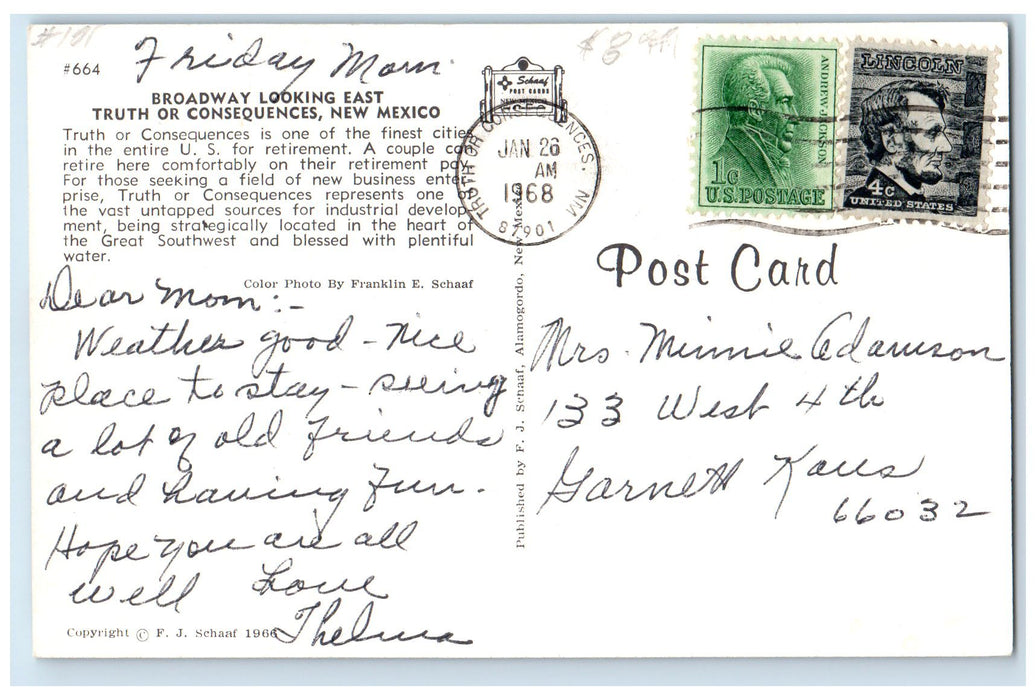 #664
Friday Morn.
BROADWAY LOOKING EAST
TRUTH OR CONSEQUENCES, NEW MEXICO
Truth or Consequences is one of the finest cities
in the entire U. S. for retirement. A couple can
retire here comfortably on their retirement pay.
For those seeking a field of new business enter-
prise, Truth or Consequences represents one of
the vast untapped sources for industrial develop-
ment, being strategically located in the heart of
the Great Southwest and blessed with plentiful
water.
Color Photo By Franklin E. Schaaf
Dear Mom:-
Weather good - nice
place to stay - seeing
a lot of old friends
and having fun.
Hope you are all
well Love
Thelma
Copyright © F. J. Schaaf 1966
Schaaf
POST CARDS
TRUTH OR CONSEQUENCES, NM
JAN 26
AM
1968
87901
Published by F. J. Schaaf, Alamogordo, New Mexico
ANDREW JACKSON
1c
U.S. POSTAGE
LINCOLN
4c
UNITED STATES
Post Card
Mrs. Minnie Adamson
133 West 4th
Garnett Kans
66032